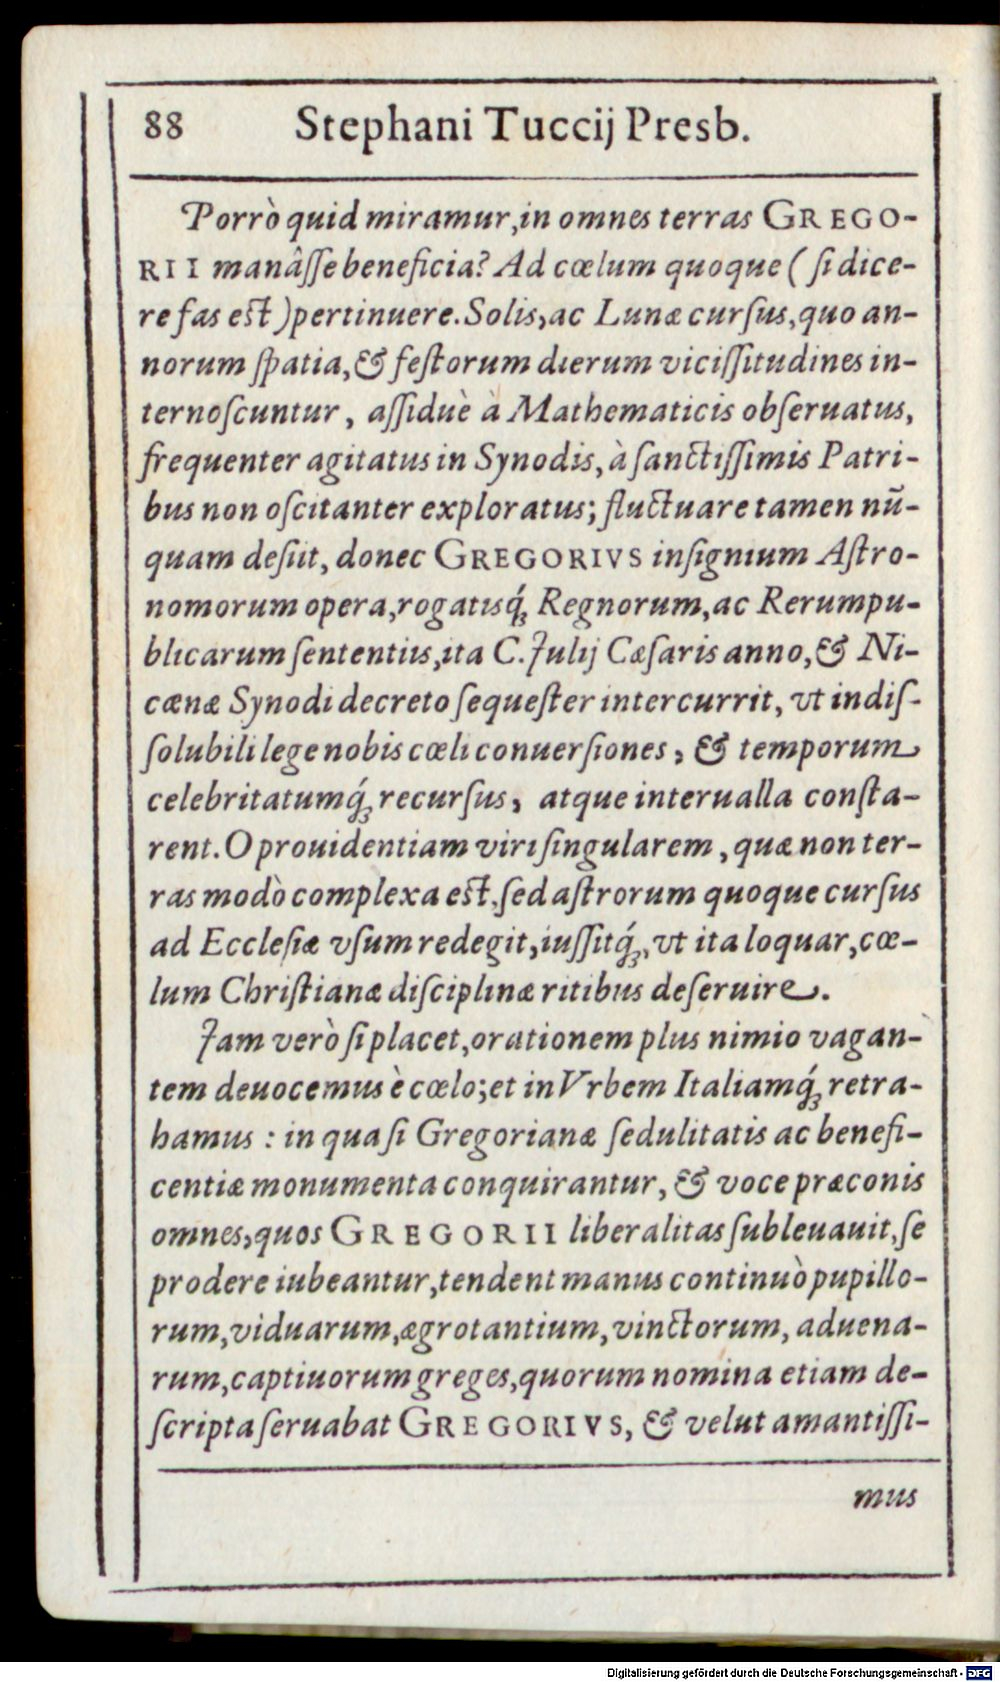 88 Stephani Tuccij Presb.
Porrò quid miramur, in omnes terras GREGO-
RII manâsse beneficia? Ad cœlum quoque (si dice-
re fas est) pertinuere. Solis, ac Lunæ cursus, quo an-
norum spatia, & festorum dierum vicissitudines in-
ternoscuntur, assiduè à Mathematicis obseruatus,
frequenter agitatus in Synodis, à sanctissimis Patri-
bus non oscitanter exploratus; fluctuare tamen nū-
quam desiit, donec GREGORIVS insignium Astro-
nomorum opera, rogatisq́; Regnorum, ac Rerumpu-
blicarum sententiis, ita C. Julij Cæsaris anno, & Ni-
cænæ Synodi decreto sequester intercurrit, vt indis-
solubili lege nobis cœli conuersiones, & temporum
celebritatumq́; recursus, atque interualla consta-
rent. O prouidentiam viri singularem, quæ non ter-
ras modò complexa est, sed astrorum quoque cursus
ad Ecclesiæ vsum redegit, iussitq́;, vt ita loquar, cœ-
lum Christianæ disciplinæ ritibus deseruire.
Jam verò si placet, orationem plus nimio vagan-
tem deuocemus è cœlo; et in Vrbem Italiamq́; retra-
hamus: in qua si Gregorianæ sedulitatis ac benefi-
centiæ monumenta conquirantur, & voce præconis
omnes, quos GREGORII liberalitas subleuauit, se
prodere iubeantur, tendent manus continuò pupillo-
rum, viduarum, ægrotantium, vinctorum, aduena-
rum, captiuorum greges, quorum nomina etiam de-
scripta seruabat GREGORIVS, & velut amantissi-
mus
Digitalisierung gefördert durch die Deutsche Forschungsgemeinschaft - DFG